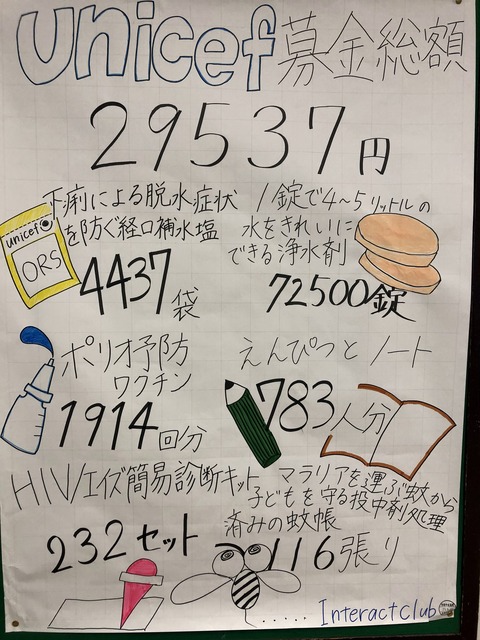 unicef募金総額
29537円
下痢による脱水症状
を防ぐ経口補水塩
unicef
ORS
4437袋
1錠で4~5リットルの
水をきれいに
できる浄水剤
72500錠
ポリオ予防
ワクチン
1914回分
えんぴつとノート
783人分
HIV/エイズ簡易診断キット
232セット
マラリアを運ぶ蚊から
子どもを守る投中剤処理
済みの蚊帳
116張り
Interactclub